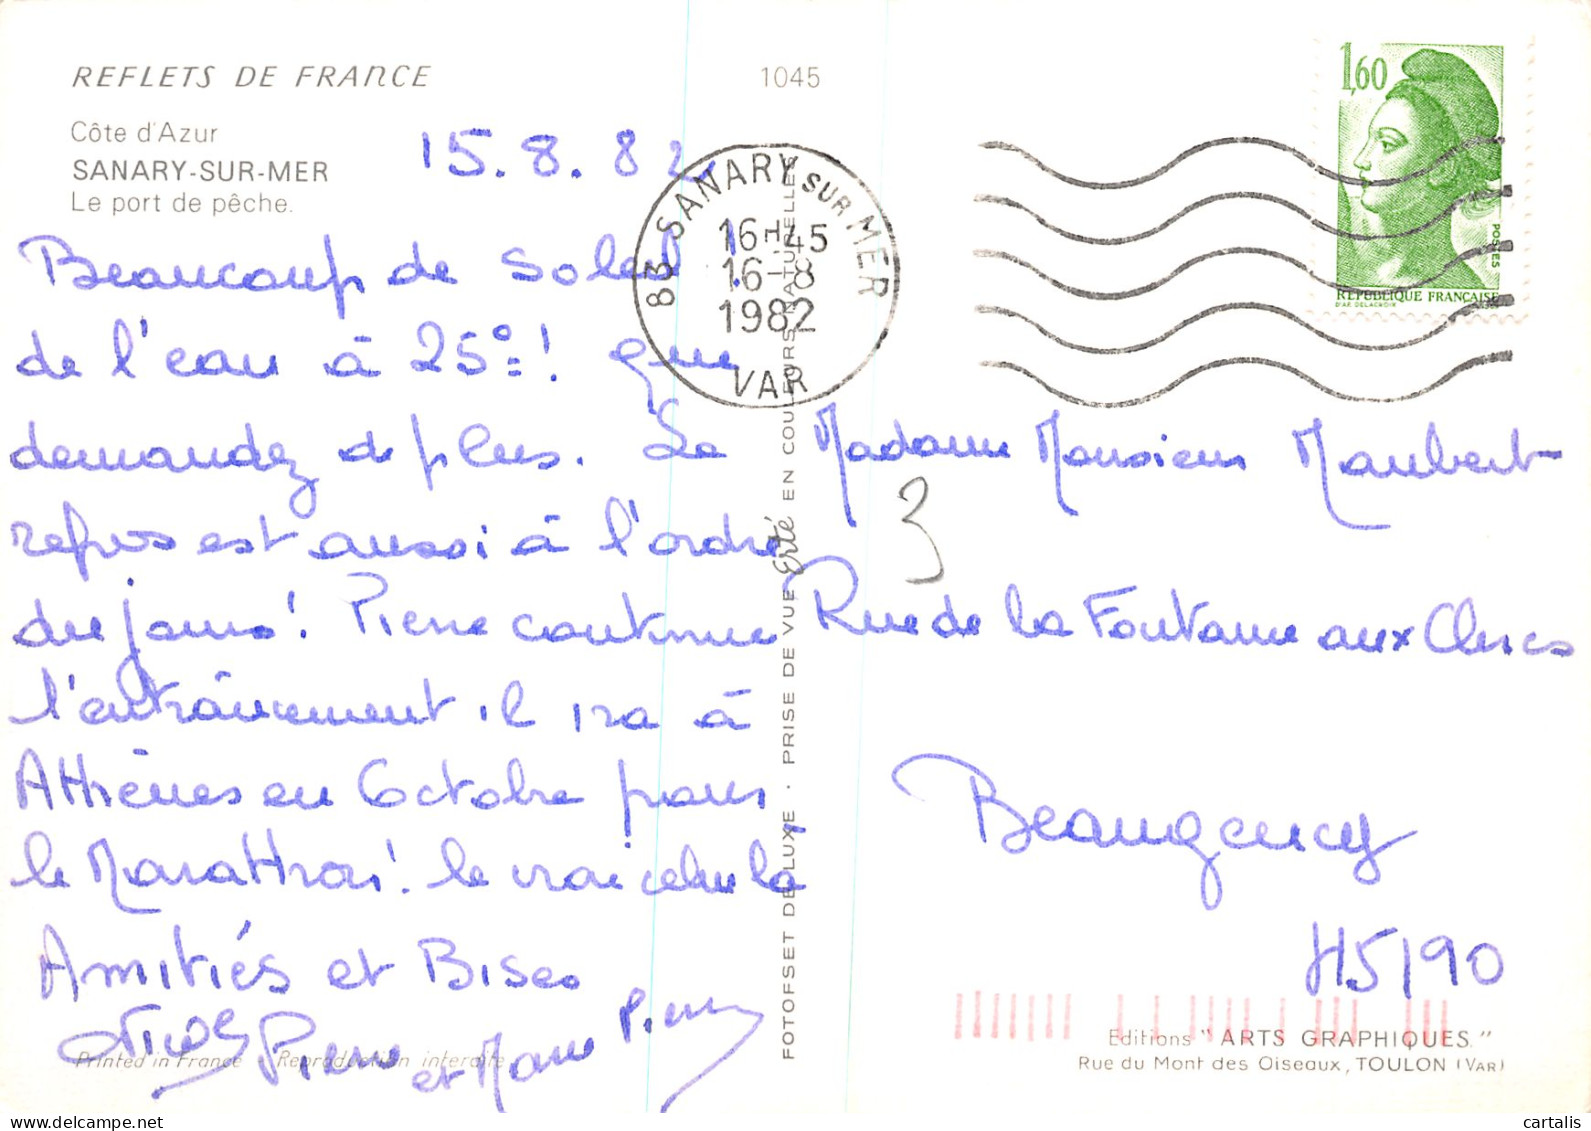 REFLETS DE FRANCE
1045
Côte d'Azur
SANARY-SUR-MER
Le port de pêche.
15.8.82
83 SANARY SUR MER
16H45
16-8
1982
VAR
1,60
POSTES
REPUBLIQUE FRANCAISE
D'AP. DELACROIX
Beaucoup de soleil !
de l'eau à 25°=! que
demandez de plus. Le
repos est aussi à l'ordre
du jour! Pierre continue
l'entraînement. il ira à
Athènes en Octobre pour
le Marathon! le vrai celui là
Amitiés et Bises
Nicole Pierre
et Marie Pierre
Madame Monsieur Maubert
3
Rue de la Fontaine aux Clercs
Beaugency
45190
FOTOFSET DE LUXE . PRISE DE VUE Erté EN COULEURS NATURELLES
Printed in France - Reproduction interdite
Editions "ARTS GRAPHIQUES"
Rue du Mont des Oiseaux, TOULON (VAR)
cartalis
www.delcampe.net